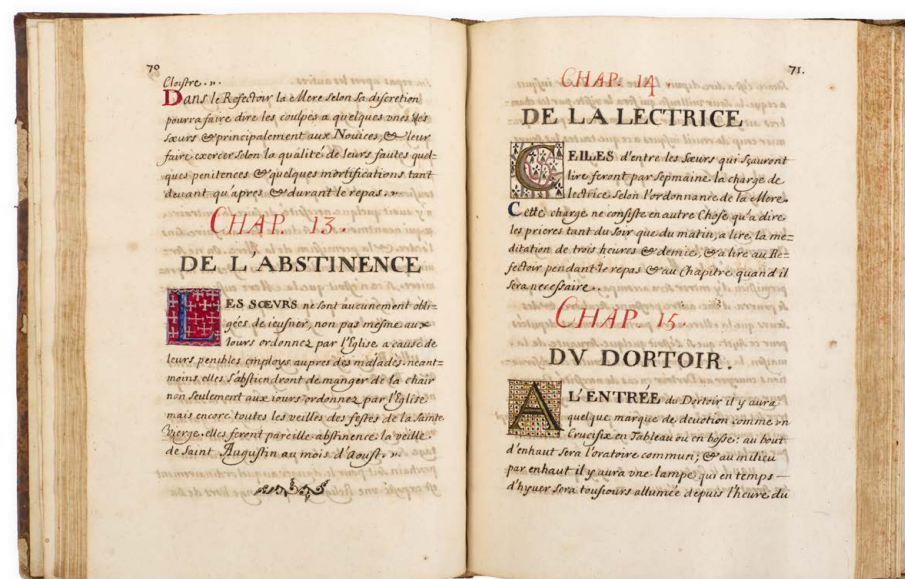 70
Cloistre.
Dans le Refectoir la Mere selon sa discretion
pourra faire dire les coulpes a quelques vnes des
sœurs & principalement aux Novices, & leur
faire exercer selon la qualité de leurs fautes quel-
ques penitences & quelques mortifications tant
devant qu'apres & durant le repas.
CHAP. 13.
DE L'ABSTINENCE
LES SŒVRS ne sont aucunement obli-
gées de ieusner, non pas mesme aux
iours ordonnez par l'Eglise a cause de
leurs penibles employs aupres des malades. neant-
moins elles s'abstiendront de manger de la chair
non seulement aux iours ordonnez par l'Eglise
mais encore toutes les veilles des festes de la Sainte
Vierge. elles feront pareille abstinence la veille
de Saint Augustin au mois d'Aoust.
71.
CHAP. 14
DE LA LECTRICE
CELLES d'entre les Sœurs qui sçauront
lire feront par sepmaine la charge de
lectrice selon l'ordonnance de la Mere.
Cette charge ne consiste en autre Chose qu'a dire
les prieres tant du soir que du matin, a lire la me-
ditation de trois heures & demie, & a lire au Re-
fectoir pendant le repas & au Chapitre quand il
sera necessaire.
CHAP. 15.
DV DORTOIR.
A L'ENTRÉE du Dortoir il y aura
quelque marque de devotion comme vn
Crucifix en Tableau ou en bosse: au bout
d'enhaut sera l'oratoire commun; & au milieu
par enhaut il y aura vne lampe qui en temps
d'hyver sera tousiours allumée depuis l'heure du